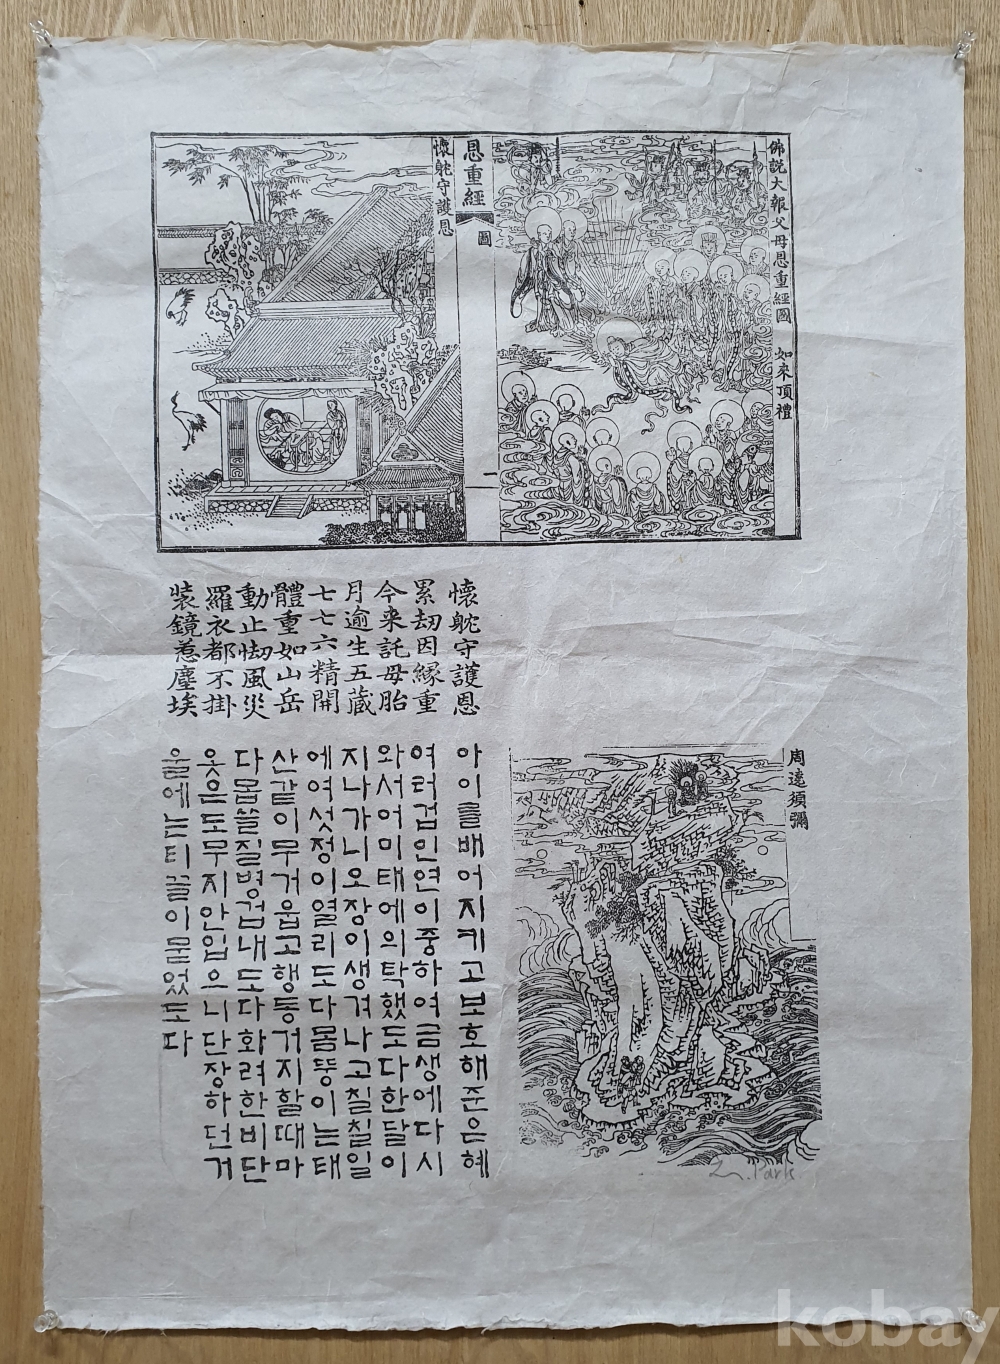 佛說大報父母恩重經圖 如來頂禮
恩重經
圖
一
懷躭守護恩
懷躭守護恩
累劫因緣重
今来託母胎
月逾生五藏
七七六精開
體重如山岳
動止怯風災
羅衣都不掛
裝鏡惹塵埃
周遶須彌
아이를배어지키고보호해준은혜
여러겁인연이중하여금생에다시
와서어미태에의탁했도다한달이
지나가니오장이생겨나고칠칠일
에여섯정이열리도다몸뚱이는태
산같이무거웁고행동거지할때마
다몹쓸질병겁내도다화려한비단
옷은도무지안입으니단장하던거
울에는티끌이묻었도다
Park
kobay